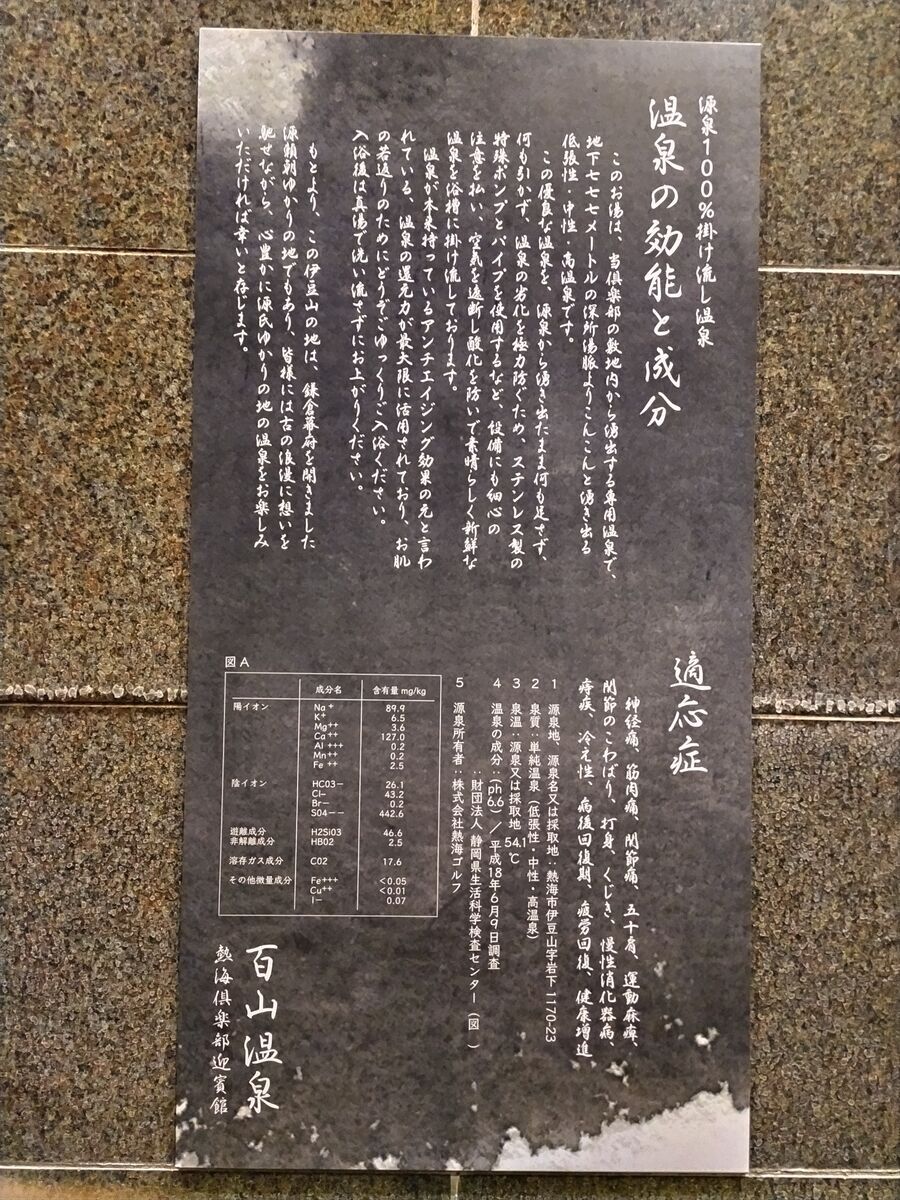 源泉100%掛け流し温泉
温泉の効能と成分
このお湯は、当倶楽部の敷地内から湧出する専用温泉で、
地下七七七メートルの深所湯脈よりこんこんと湧き出る
低張性・中性・高温泉です。
この優良な温泉を、源泉から湧き出たまま何も足さず、
何も引かず、温泉の劣化を極力防ぐため、ステンレス製の
特殊ポンプとパイプを使用するなど、設備にも細心の
注意を払い、空気を遮断し酸化を防いで素晴らしく新鮮な
温泉を浴槽に掛け流しております。
温泉が本来持っているアンチエイジング効果の元と言わ
れている、温泉の還元力が最大限に活用されており、お肌
の若返りのためにどうぞごゆっくりご入浴ください。
入浴後は真湯で洗い流さずにお上がりください。
もとより、この伊豆山の地は、鎌倉幕府を開きました
源頼朝ゆかりの地でもあり、皆様には古の浪漫に想いを
馳せながら、心豊かに源氏ゆかりの地の温泉をお楽しみ
いただければ幸いと存じます。
適応症
神経痛、筋肉痛、関節痛、五十肩、運動麻痺、
関節のこわばり、打身、くじき、慢性消化器病、
痔疾、冷え性、病後回復期、疲労回復、健康増進
1 源泉地、源泉名又は採取地：熱海市伊豆山字岩下1170-23
2 泉質：単純温泉（低張性・中性・高温泉）
3 泉温：源泉又は採取地 54.1℃
4 温泉の成分：(ph6.6)／平成18年6月9日調査
：財団法人 静岡県生活科学検査センター（図 ）
5 源泉所有者：株式会社熱海ゴルフ
図A
成分名 含有量 mg/kg
陽イオン Na+ 89.9
K+ 6.5
Mg++ 3.6
Ca++ 127.0
Al+++ 0.2
Mn++ 0.2
Fe++ 2.5
陰イオン HCO3- 26.1
Cl- 43.2
Br- 0.2
SO4-- 442.6
遊離成分 H2SiO3 46.6
非解離成分 HBO2 2.5
溶存ガス成分 CO2 17.6
その他微量成分 Fe+++ <0.05
Cu++ <0.01
I- 0.07
百山温泉
熱海倶楽部迎賓館